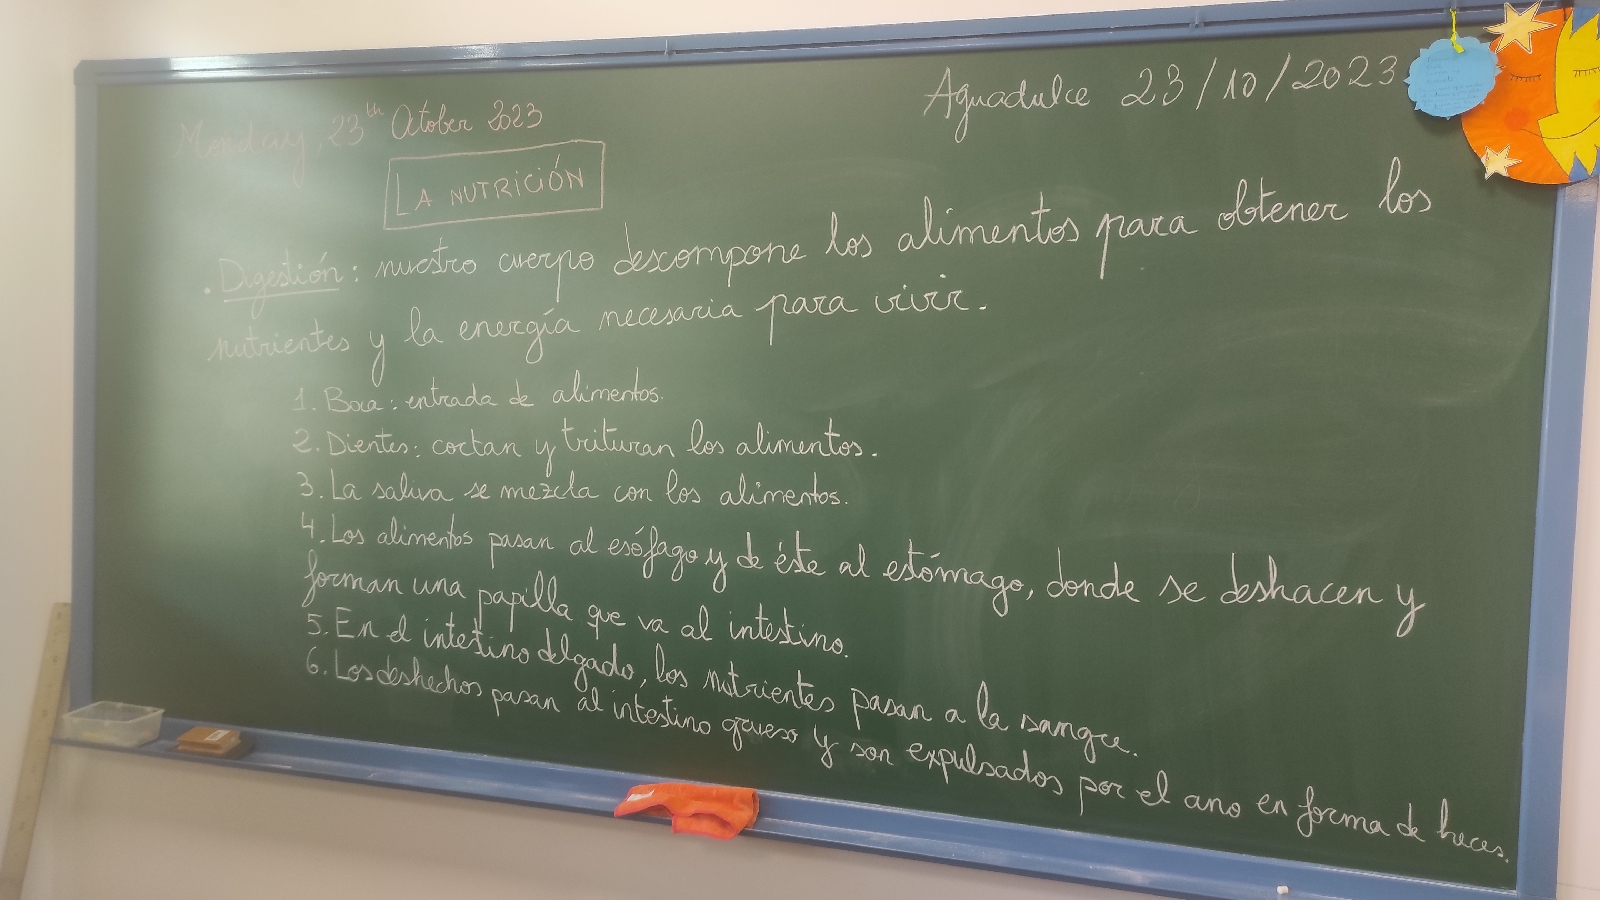 Monday, 23th October 2023
Aguadulce 23/10/2023
LA NUTRICIÓN
. Digestión: nuestro cuerpo descompone los alimentos para obtener los
nutrientes y la energía necesaria para vivir.
1. Boca: entrada de alimentos.
2. Dientes: cortan y trituran los alimentos.
3. La saliva se mezcla con los alimentos.
4. Los alimentos pasan al esófago y de éste al estómago, donde se deshacen y
forman una papilla que va al intestino.
5. En el intestino delgado, los nutrientes pasan a la sangre.
6. Los deshechos pasan al intestino grueso y son expulsados por el ano en forma de heces.